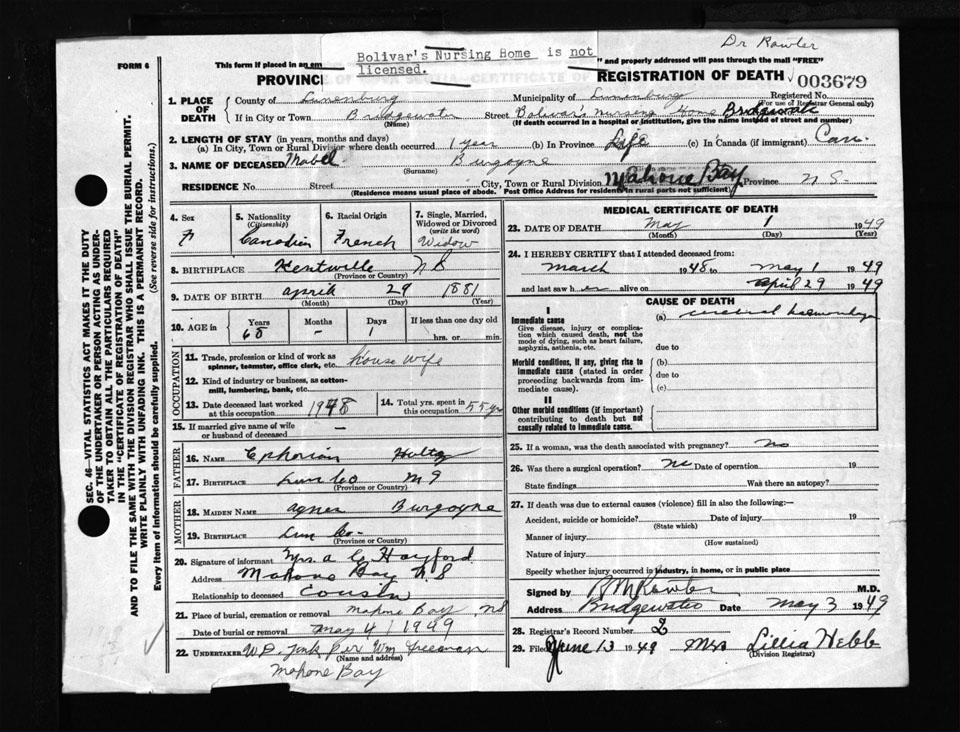 Dr Rawler
FORM 6
This form if placed in an en
Bolivar's Nursing Home is not
licensed.
" and properly addressed will pass through the mail "FREE"
PROVINC
REGISTRATION OF DEATH
003679
1. PLACE OF DEATH
County of Lunenburg
Municipality of Lunenburg
Registered No.
(For use of Registrar General only)
If in City or Town Bridgewater
(Name)
Street Bolivar's Nursing Home Bridgewater
(If death occurred in a hospital or institution, give the name instead of street and number)
2. LENGTH OF STAY (in years, months and days)
(a) In City, Town or Rural Division where death occurred 1 year
(b) In Province Life
(c) In Canada (if immigrant) Can
3. NAME OF DECEASED Mabel Burgoyne
(Surname)
RESIDENCE No. Street City, Town or Rural Division Mahone Bay Province N S
(Residence means usual place of abode. Post Office Address for residents in rural parts not sufficient)
4. Sex
F
5. Nationality
(Citizenship)
Canadian
6. Racial Origin
French
7. Single, Married,
Widowed or Divorced
(write the word)
Widow
8. BIRTHPLACE Kentville N S
(Province or Country)
9. DATE OF BIRTH April 29 1881
(Month) (Day) (Year)
10. AGE in
Years
68
Months
-
Days
1
If less than one day old
hrs. or min.
OCCUPATION
11. Trade, profession or kind of work as
spinner, teamster, office clerk, etc. house wife
12. Kind of industry or business, as cotton-
mill, lumbering, bank, etc.
13. Date deceased last worked
at this occupation 1948
14. Total yrs. spent in
this occupation 55 yrs
15. If married give name of wife
or husband of deceased
FATHER
16. Name Ephoriam Hultz
17. Birthplace Lun Co
(Province or Country)
MOTHER
18. MAIDEN NAME Agnes Burgoyne
19. BIRTHPLACE Lun Co
(Province or Country)
20. Signature of informant Mrs. A G Hayford
Address Mahone Bay N. S
Relationship to deceased Cousin
21. Place of burial, cremation or removal Mahone Bay N S
Date of burial or removal May 4 / 1949
22. UNDERTAKER W P. Zink per Wm Freeman
(Name and address)
Mahone Bay
MEDICAL CERTIFICATE OF DEATH
23. DATE OF DEATH May 1 1949
(Month) (Day) (Year)
24. I HEREBY CERTIFY that I attended deceased from:
March 1948 to May 1 1949
and last saw her alive on April 29 1949
CAUSE OF DEATH
I
Immediate cause
Give disease, injury or complica-
tion which caused death, not the
mode of dying, such as heart failure,
asphyxia, asthenia, etc.
(a) cerebral haemorrhage
due to
Morbid conditions, if any, giving rise to
immediate cause (stated in order
proceeding backwards from im-
mediate cause).
(b)
due to
(c)
II
Other morbid conditions (if important)
contributing to death but not
causally related to immediate cause.
25. If a woman, was the death associated with pregnancy? No
26. Was there a surgical operation? No Date of operation 19
State findings Was there an autopsy?
27. If death was due to external causes (violence) fill in also the following:-
Accident, suicide or homicide? Date of injury 19
(State which)
Manner of injury
(How sustained)
Nature of injury
Specify whether injury occurred in industry, in home, or in public place
Signed by R M Rawler M.D.
Address Bridgewater Date May 3 1949
28. Registrar's Record Number 2
29. Filed June 13 1949 Mrs Lillia Hebb
(Division Registrar)
SEC. 46—VITAL STATISTICS ACT MAKES IT THE DUTY
OF THE UNDERTAKER OR PERSON ACTING AS UNDER-
TAKER TO OBTAIN ALL THE PARTICULARS REQUIRED
IN THE "CERTIFICATE OF REGISTRATION OF DEATH"
AND TO FILE THE SAME WITH THE DIVISION REGISTRAR WHO SHALL ISSUE THE BURIAL PERMIT.
WRITE PLAINLY WITH UNFADING INK. THIS IS A PERMANENT RECORD.
Every item of information should be carefully supplied. (See reverse side for instructions.)